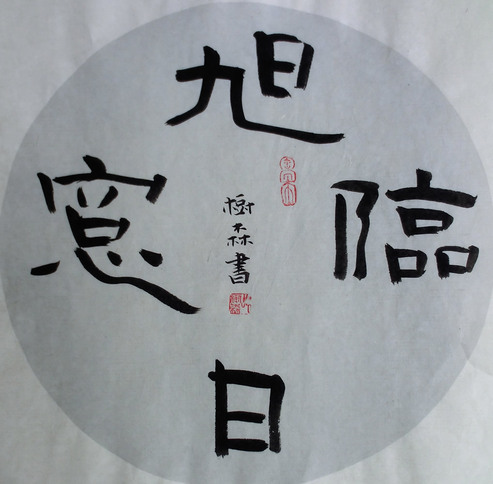 旭
日
臨
窓
樹森書